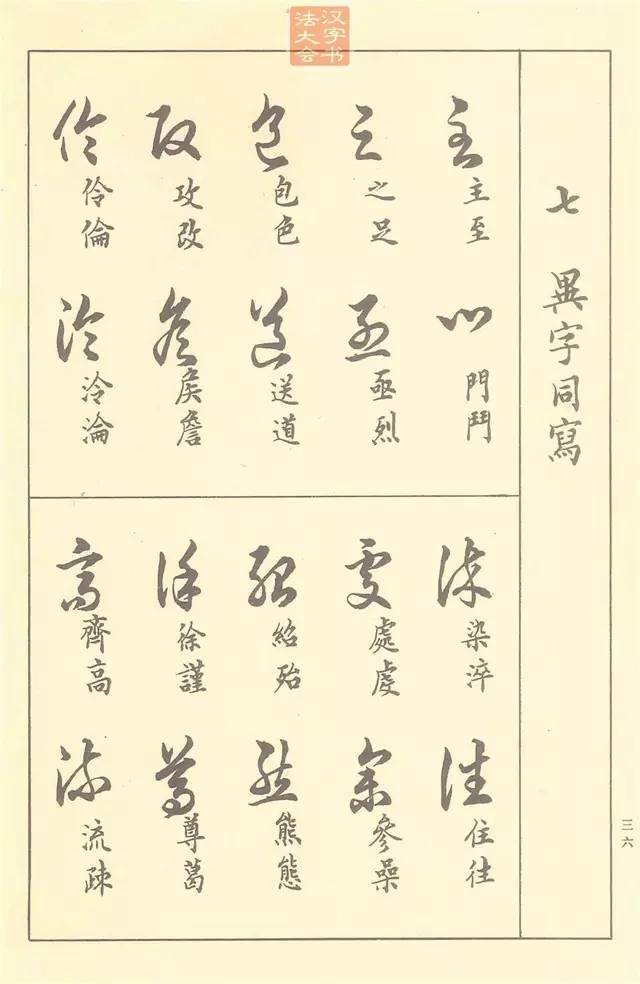 汉字书法大会
七 異字同寫
主至
門鬥
之足
亟烈
包色
送道
攻改
侯詹
伶倫
泠淪
染淬
住往
處虔
參喿
紹殆
熊態
徐謹
尊葛
齊高
流疎
三六